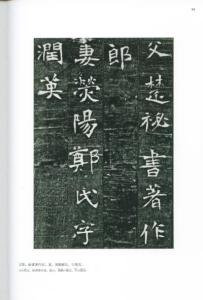 父楚秘書著作
郎
妻滎陽鄭氏字
潤英